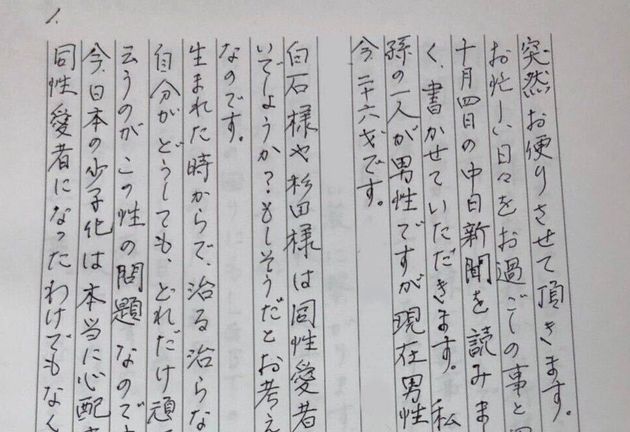 1.
突然お便りさせて頂きます。
お忙しい日々をお過ごしの事と
十月四日の中日新聞を読みま
く、書かせていただきます。私
孫の一人が男性ですが現在男性
今、二十六才です。
白石様や杉田様は同性愛者
いでしょうか?もしそうだとお考え
なのです。
生まれた時からで、治る治らな
自分がどうしても、どれだけ頑
云うのがこの性の問題なので
今、日本の少子化は本当に心配
同性愛者になったわけでもなく